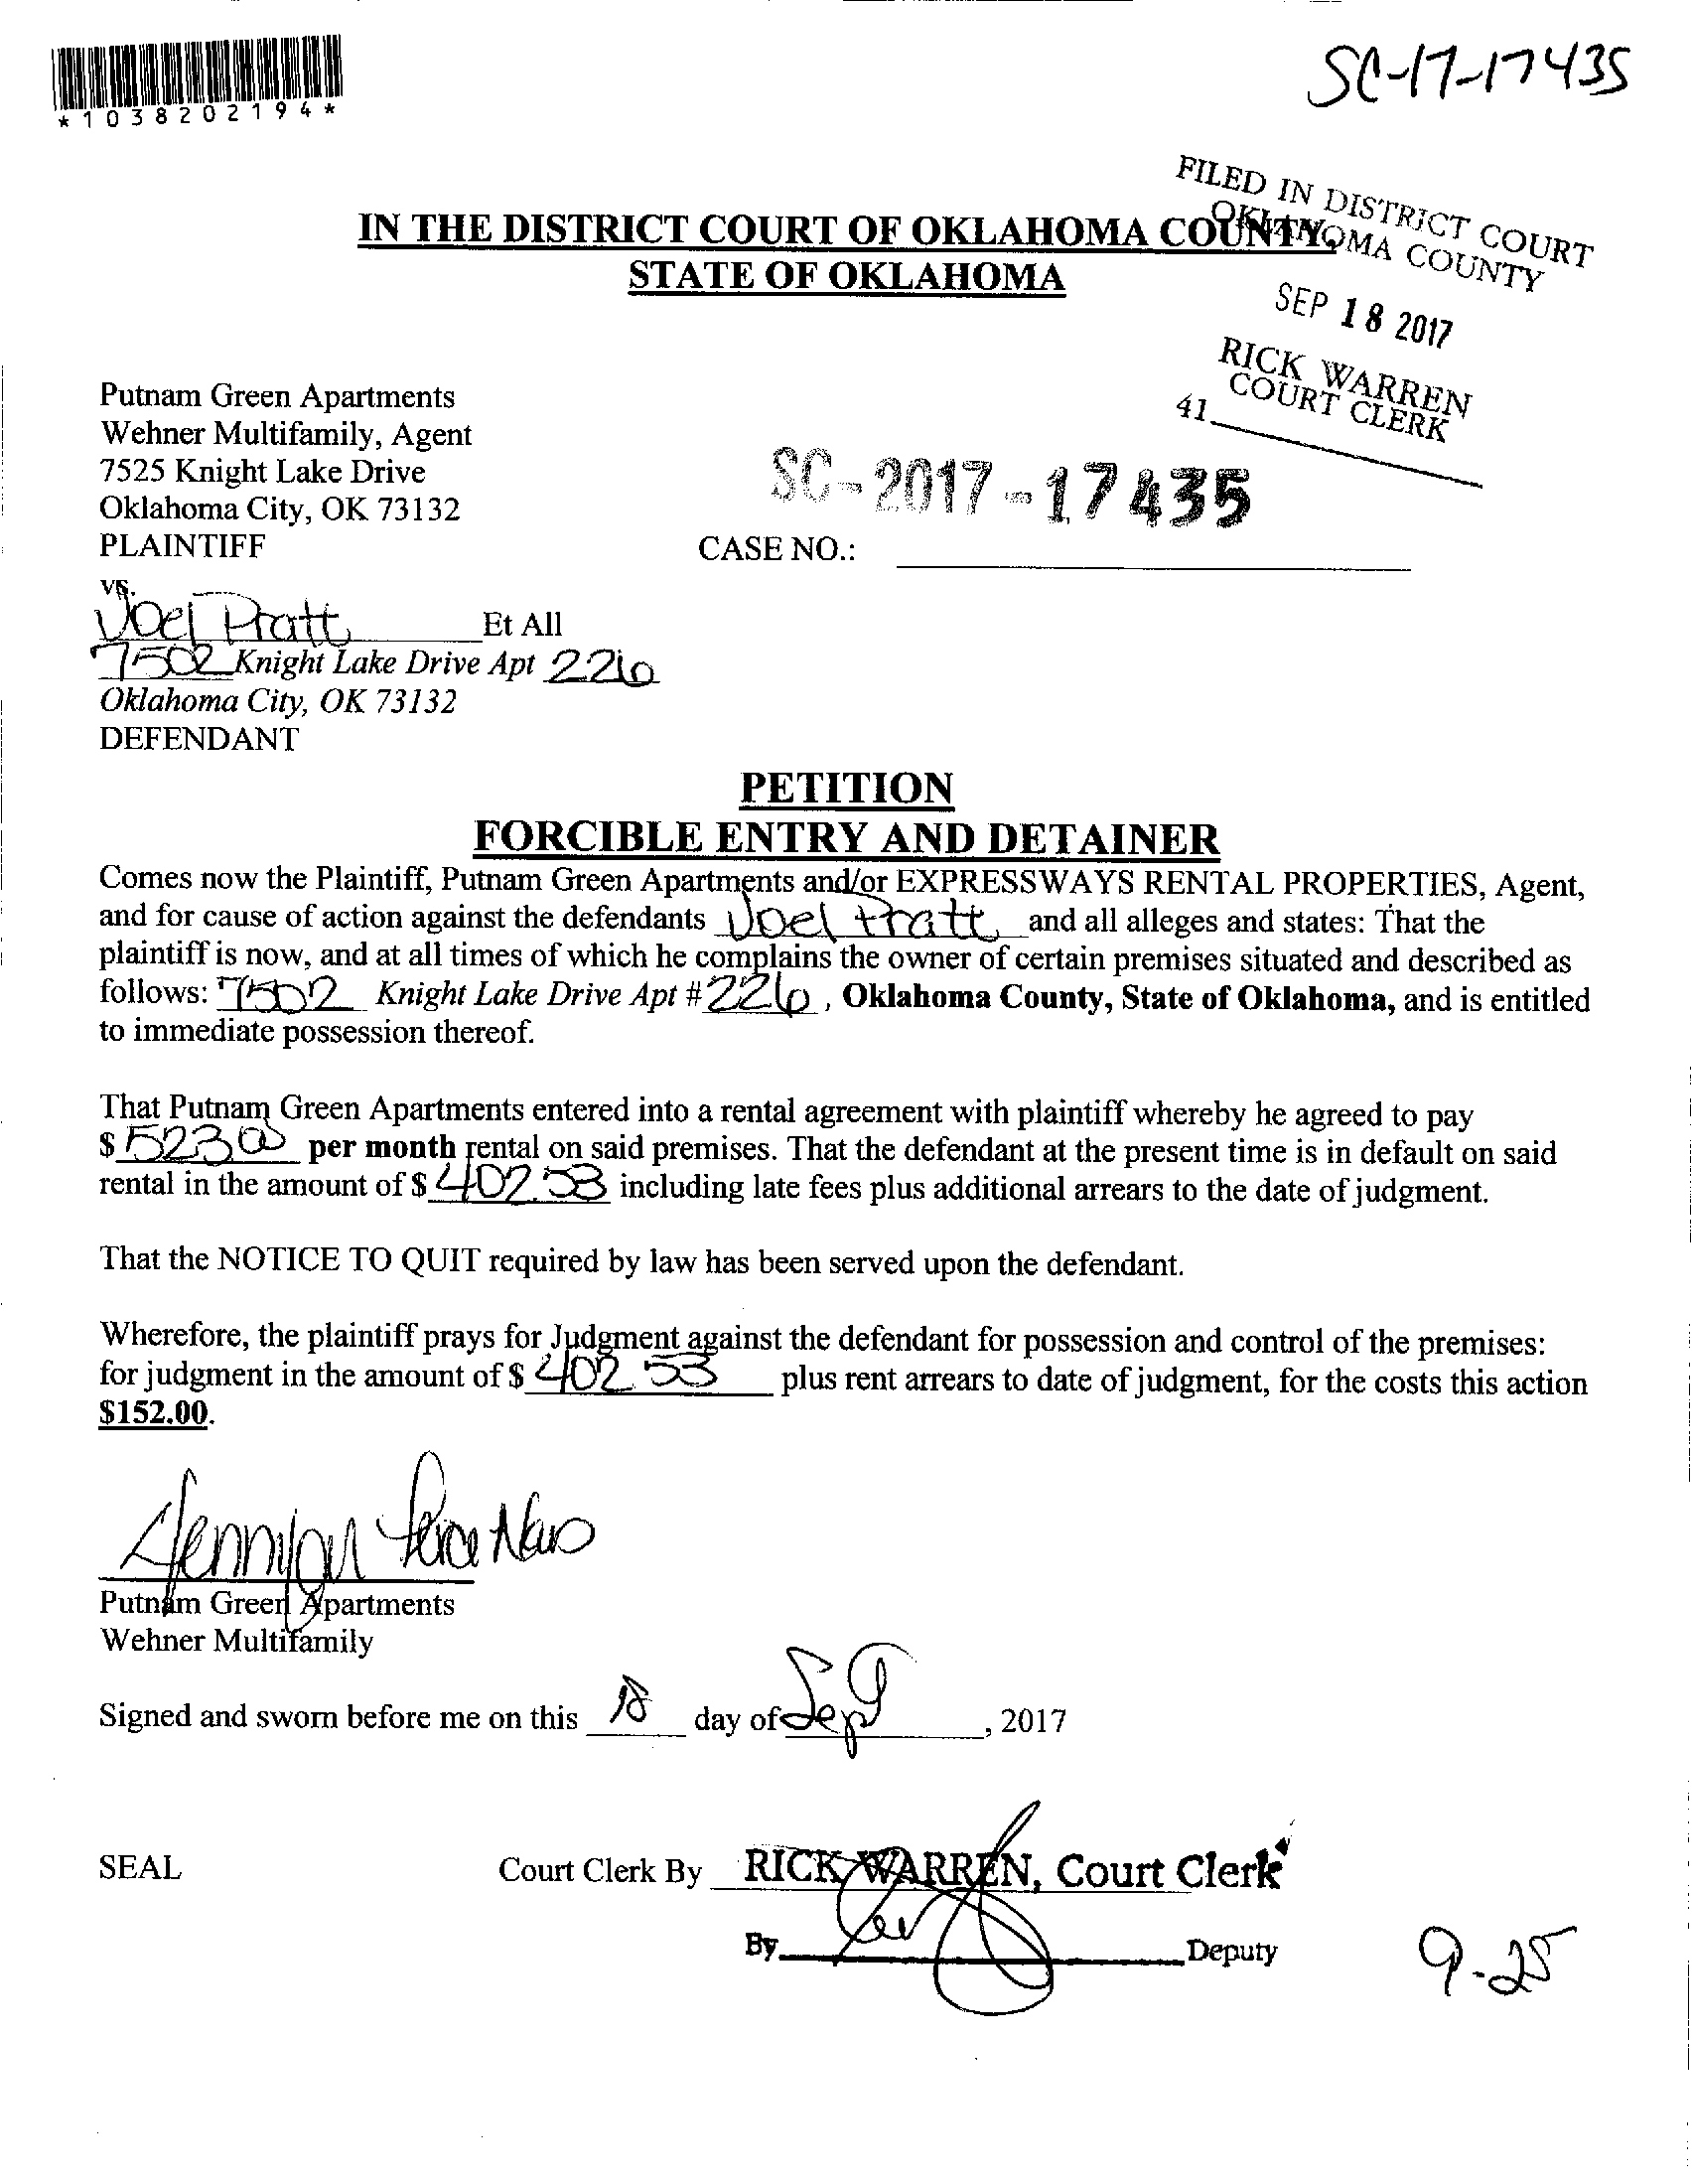 *1038202194*
SC-17-17435
FILED IN DISTRICT COURT
OKLAHOMA COUNTY
SEP 18 2017
RICK WARREN
COURT CLERK
41
IN THE DISTRICT COURT OF OKLAHOMA COUNTY,
STATE OF OKLAHOMA
Putnam Green Apartments
Wehner Multifamily, Agent
7525 Knight Lake Drive
Oklahoma City, OK 73132
PLAINTIFF
SC-2017-17435
CASE NO.:
vs.
Joel Pratt Et All
7502 Knight Lake Drive Apt 226
Oklahoma City, OK 73132
DEFENDANT
PETITION
FORCIBLE ENTRY AND DETAINER
Comes now the Plaintiff, Putnam Green Apartments and/or EXPRESSWAYS RENTAL PROPERTIES, Agent,
and for cause of action against the defendants Joel Pratt and all alleges and states: That the
plaintiff is now, and at all times of which he complains the owner of certain premises situated and described as
follows: 7502 Knight Lake Drive Apt #226, Oklahoma County, State of Oklahoma, and is entitled
to immediate possession thereof.
That Putnam Green Apartments entered into a rental agreement with plaintiff whereby he agreed to pay
$523.00 per month rental on said premises. That the defendant at the present time is in default on said
rental in the amount of $402.53 including late fees plus additional arrears to the date of judgment.
That the NOTICE TO QUIT required by law has been served upon the defendant.
Wherefore, the plaintiff prays for Judgment against the defendant for possession and control of the premises:
for judgment in the amount of $402.53 plus rent arrears to date of judgment, for the costs this action
$152.00.
Putnam Green Apartments
Wehner Multifamily
Signed and sworn before me on this 18 day of Sept, 2017
SEAL Court Clerk By RICK WARREN, Court Clerk
By Deputy
9-25